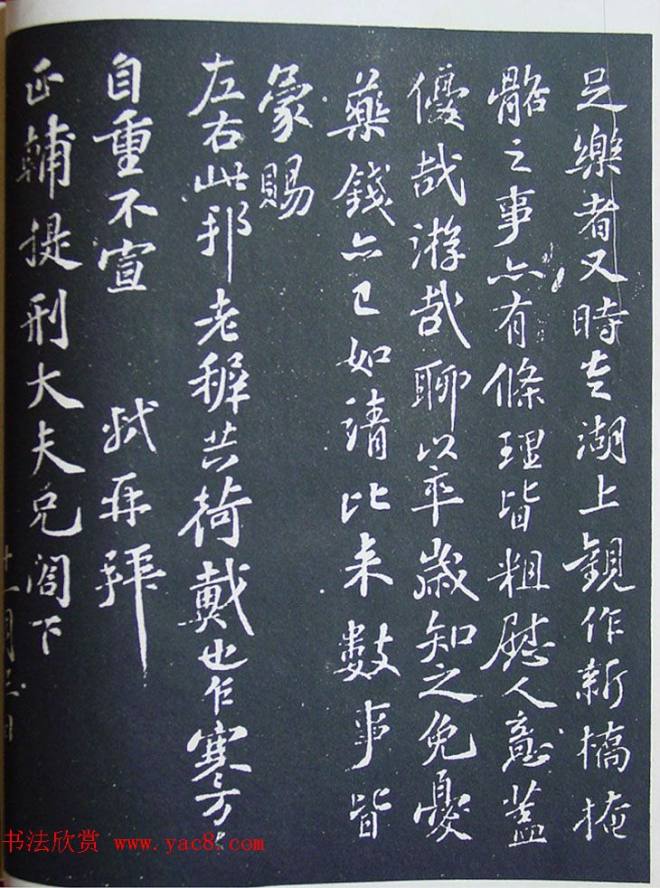 足樂者又時走湖上觀作新橋掩
骼之事亦有條理皆粗慰人意蓋
優哉游哉聊以卒歲知之免憂
藥錢亦已如請比来數事皆
蒙賜
左右此邦老稺共荷戴也乍寒万〻
自重不宣 軾再拜
正輔提刑大夫兄閣下
十一月
书法欣赏 www.yac8.com